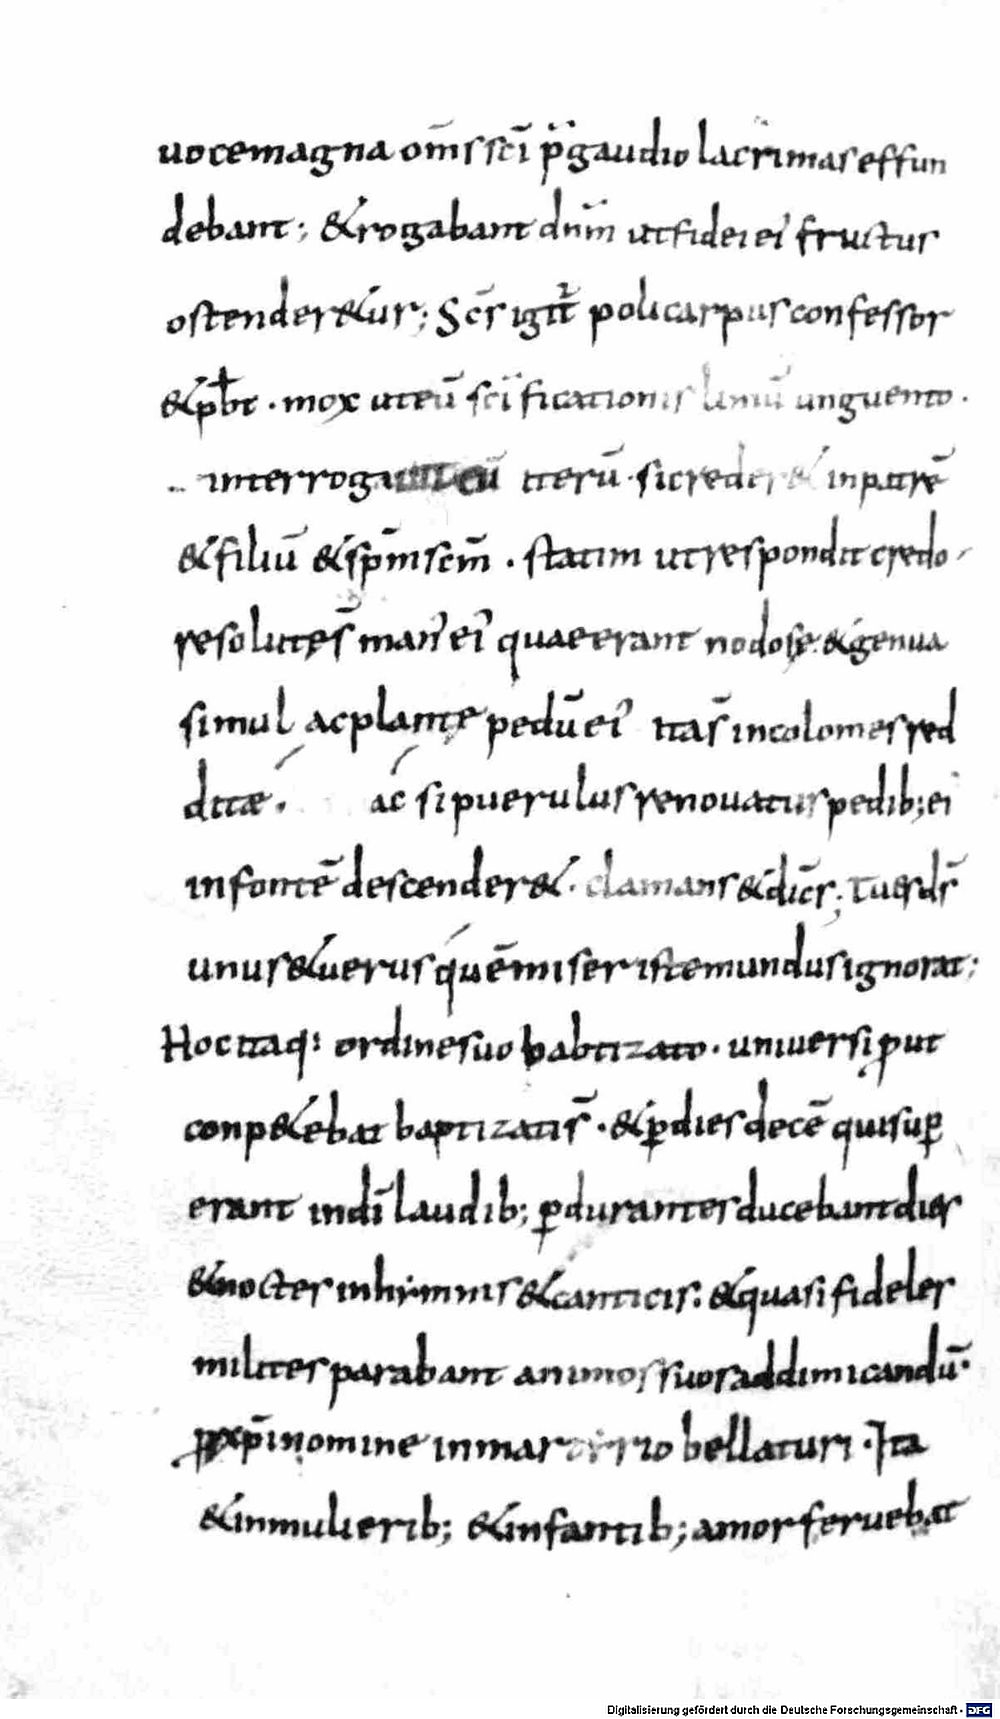 uocemagna om̄s sc̄i p̄gaudio lacrimas effun
debant; & rogabant dn̄m ut fidei ei' fructus
ostender&ur; Sc̄s igit̄ policarpus confessor
& pb̄t · mox ut eū sc̄ificationis liniuū unguento ·
interrogauit eū iterū · si creder& in patrē
& filiū & sp̄m sc̄m̄ · statim ut respondit credo ·
resolutę s̄ man' ei' quae erant nodosę · & genua
simul ac plantę pedū ei' ita s̄ incolomes red
ditæ · ac si puerulus renouatus pedib; ei
in fontē descender& · clamans & dic̄s; Tu es ds̄
unus & uerus quē miser iste mundus ignorat;
Hoc itaq; ordine suo babtizato · uniuersi put
conp&ebat baptizati s̄ · & p dies decē qui sup
erant in dī laudib; pdurantes ducebant dies
& noctes in himnis & canticis : & quasi fideles
milites parabant animos suos ad dimicandū ·
p xp̄i nomine in martirio bellaturi · Ita
& in mulierib; & infantib; amor feruebat
Digitalisierung gefördert durch die Deutsche Forschungsgemeinschaft - DFG